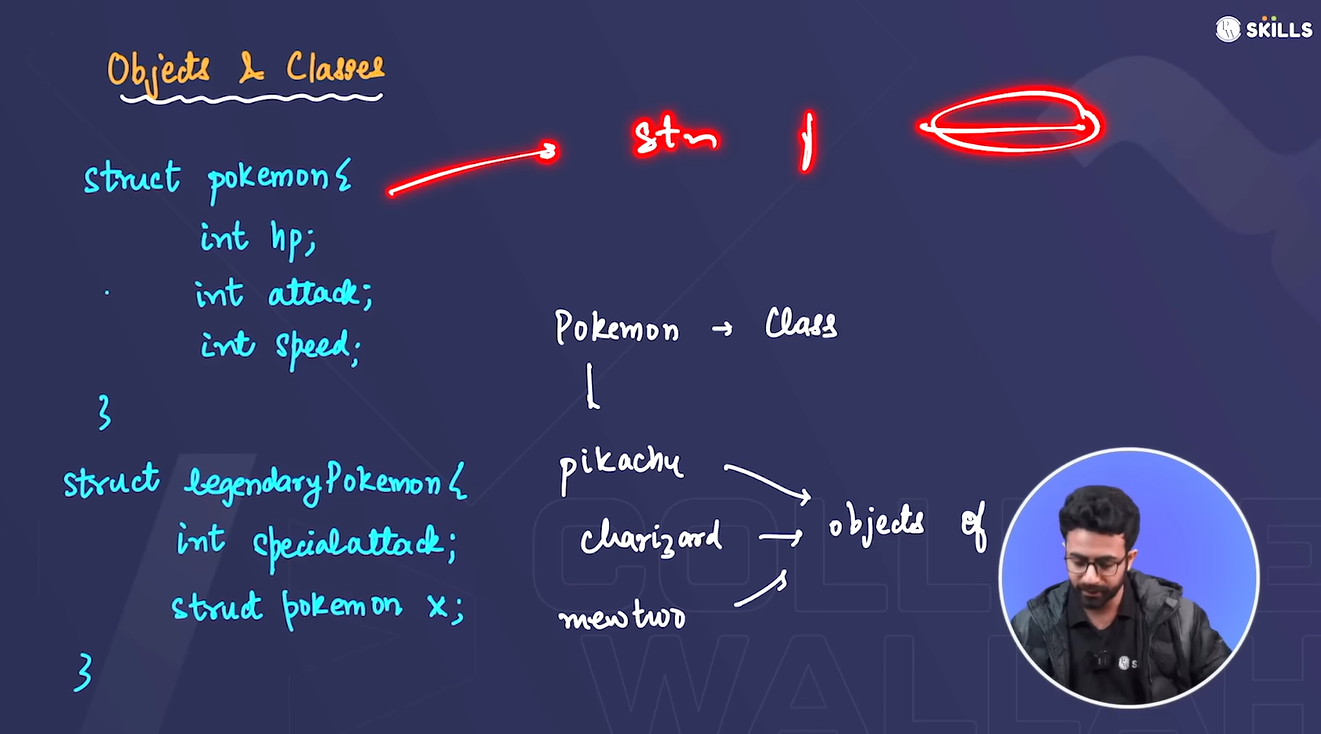 SKILLS
Objects & Classes
struct pokemon{
int hp;
int attack;
int speed;
}
struct legendaryPokemon{
int specialattack;
struct pokemon x;
}
stn
Pokemon → Class
pikachu
charizard
mewtwo
objects of
COLLE
WALLAH